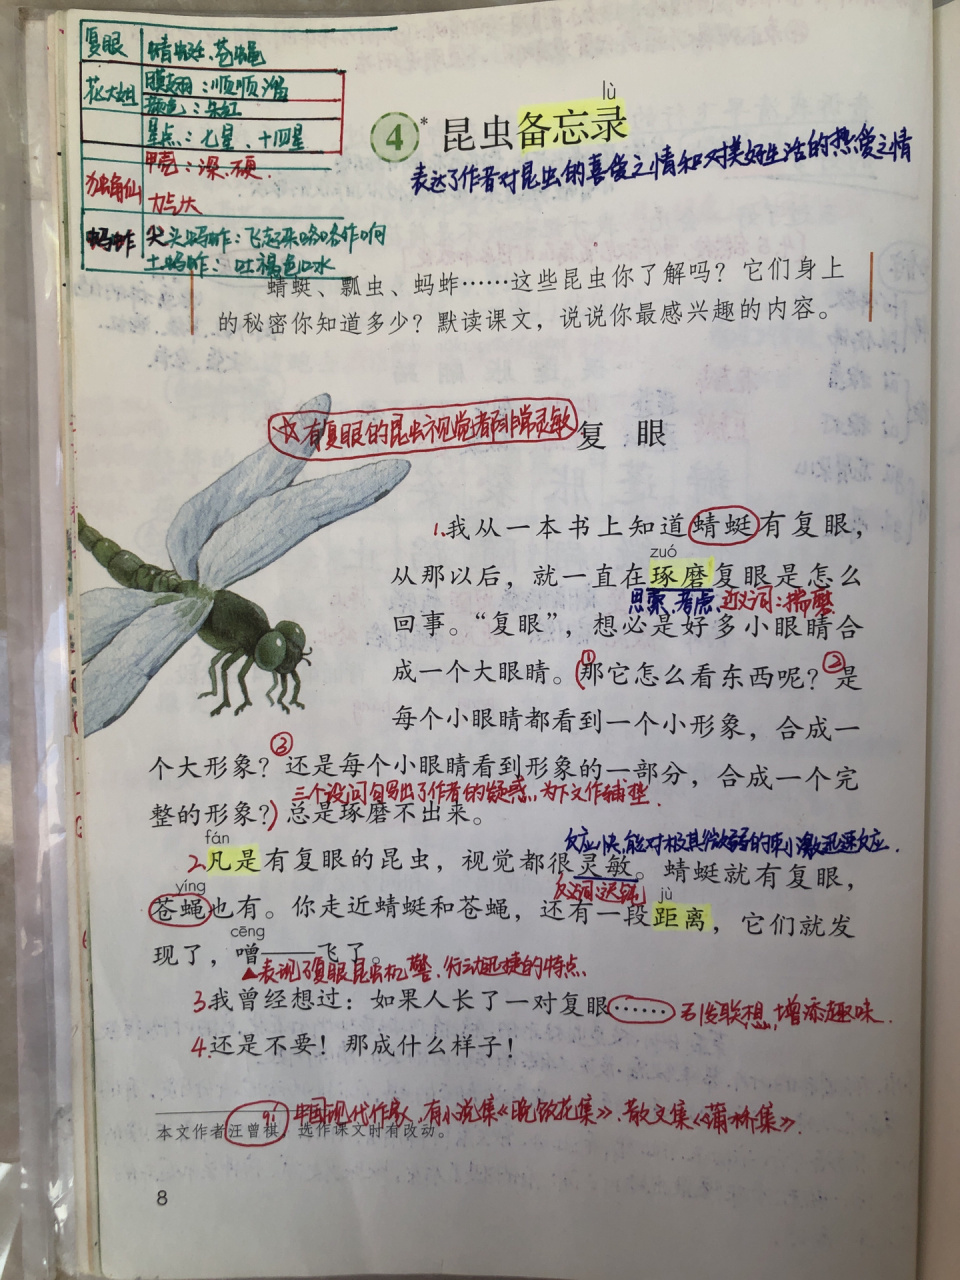 复眼 蜻蜓、苍蝇
花大姐 膜翅：顺顺溜溜
颜色：朱红
星点：七星、十四星
独角仙 甲壳：深、硬.
力气大
蚂蚱 尖头蚂蚱：飞起来咯咯作响
土蚂蚱：吐褐色口水
lù
4* 昆虫备忘录
表达了作者对昆虫的喜爱之情和对美好生活的热爱之情
蜻蜓、瓢虫、蚂蚱……这些昆虫你了解吗？它们身上
的秘密你知道多少？默读课文，说说你最感兴趣的内容。
☆有复眼的昆虫视觉都非常灵敏
复 眼
1.我从一本书上知道蜻蜓有复眼，
zuó
从那以后，就一直在琢磨复眼是怎么
思索、考虑、近义词：揣摩
回事。“复眼”，想必是好多小眼睛合
成一个大眼睛。①(那它怎么看东西呢？②是
每个小眼睛都看到一个小形象，合成一
个大形象？③还是每个小眼睛看到形象的一部分，合成一个完
三个设问句写出了作者的疑惑,为下文作铺垫.
整的形象？)总是琢磨不出来。
反应快,能对极其微弱的刺激迅速反应.
fán
2.凡是有复眼的昆虫，视觉都很灵敏。蜻蜓就有复眼，
反义词:迟钝
yíng jù
苍蝇也有。你走近蜻蜓和苍蝇，还有一段距离，它们就发
cēng
现了，噌——飞了。
▲表现了复眼昆虫机警、行动迅捷的特点
3我曾经想过：如果人长了一对复眼…… 引发联想,增添趣味.
4.还是不要！那成什么样子！
中国现代作家,有小说集《晚饭花集》、散文集《蒲桥集》.
本文作者汪曾祺，选作课文时有改动。
8